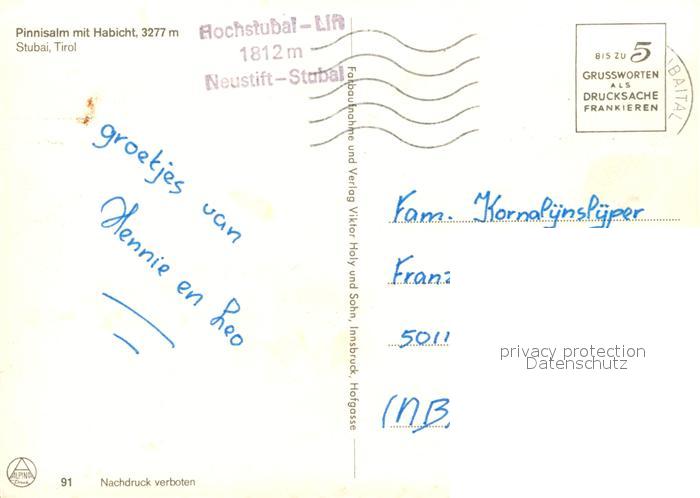 Pinnisalm mit Habicht, 3277 m
Stubai, Tirol
Hochstubai-Lift
1812 m
Neustift-Stubai
BIS ZU 5
GRUSSWORTEN
ALS
DRUCKSACHE
FRANKIEREN
BAITAL
groetjes van
Hennie en Leo
Farbaufnahme und Verlag Viktor Holy und Sohn, Innsbruck, Hofgasse
Fam. Kornalijnslijper
Fran
5011
(NB
privacy protection
Datenschutz
ALPINA
Druck
91 Nachdruck verboten